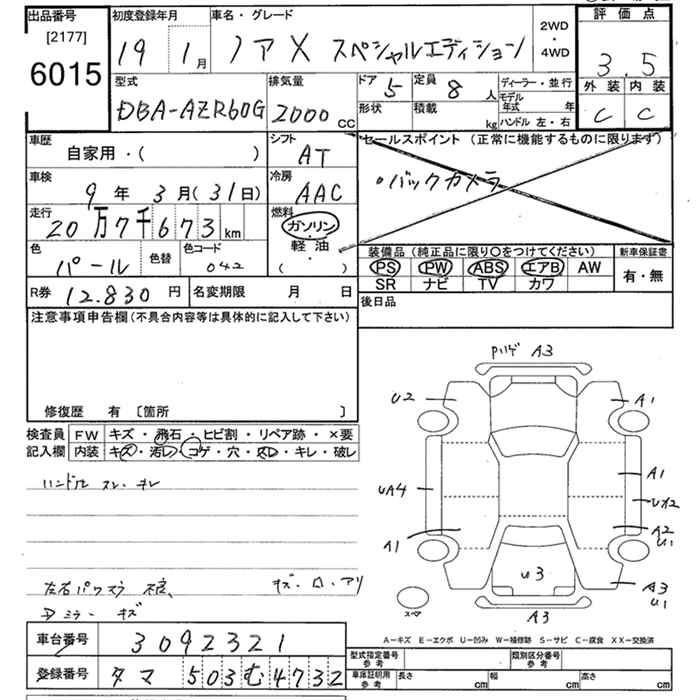 出品番号
[2177]
6015
初度登録年月
19 1月
車名・グレード
ノアX スペシャルエディション
2WD
・
4WD
評価点
3.5
外装 内装
C C
型式
DBA-AZR60G
排気量
2000 CC
ドア 5
形状
定員 8 人
積載 kg
ディーラー・並行
モデル年式 年
ハンドル 左・右
車歴
自家用・( )
シフト
AT
セールスポイント (正常に機能するものに限ります)
・バックカメラ
車検
9年 3月(31日)
冷房
AAC
走行
20万7千673km
燃料
ガソリン
・
軽油
( )
色
パール
色替
色コード
042
装備品(純正品に限り○をつけてください)
PS PW ABS エアB AW
SR ナビ TV カワ
新車保証書
有・無
R券 12.830円
名変期限 月 日
後日品
注意事項申告欄(不具合内容等は具体的に記入して下さい)
修復歴 有 〔箇所 〕
検査員
記入欄
FW キズ・飛石・ヒビ割・リペア跡・×要
内装 キズ・汚レ・コゲ・穴・スレ・キレ・破レ
ハンドル スレ・キレ
キズ・
キズ
Pハゲ A3
U2
A1
UA4
A1
A1
A2
U1
U3
A3
U1
A3
スペア
A−キズ E−エクボ U−凹み W−補修跡 S−サビ C−腐食 XX−交換済
車台番号 3092321
登録番号 タマ 503む4732
型式指定番号
参考
類別区分番号
参考
車庫証明用
参考
長さ cm 幅 cm 高さ cm